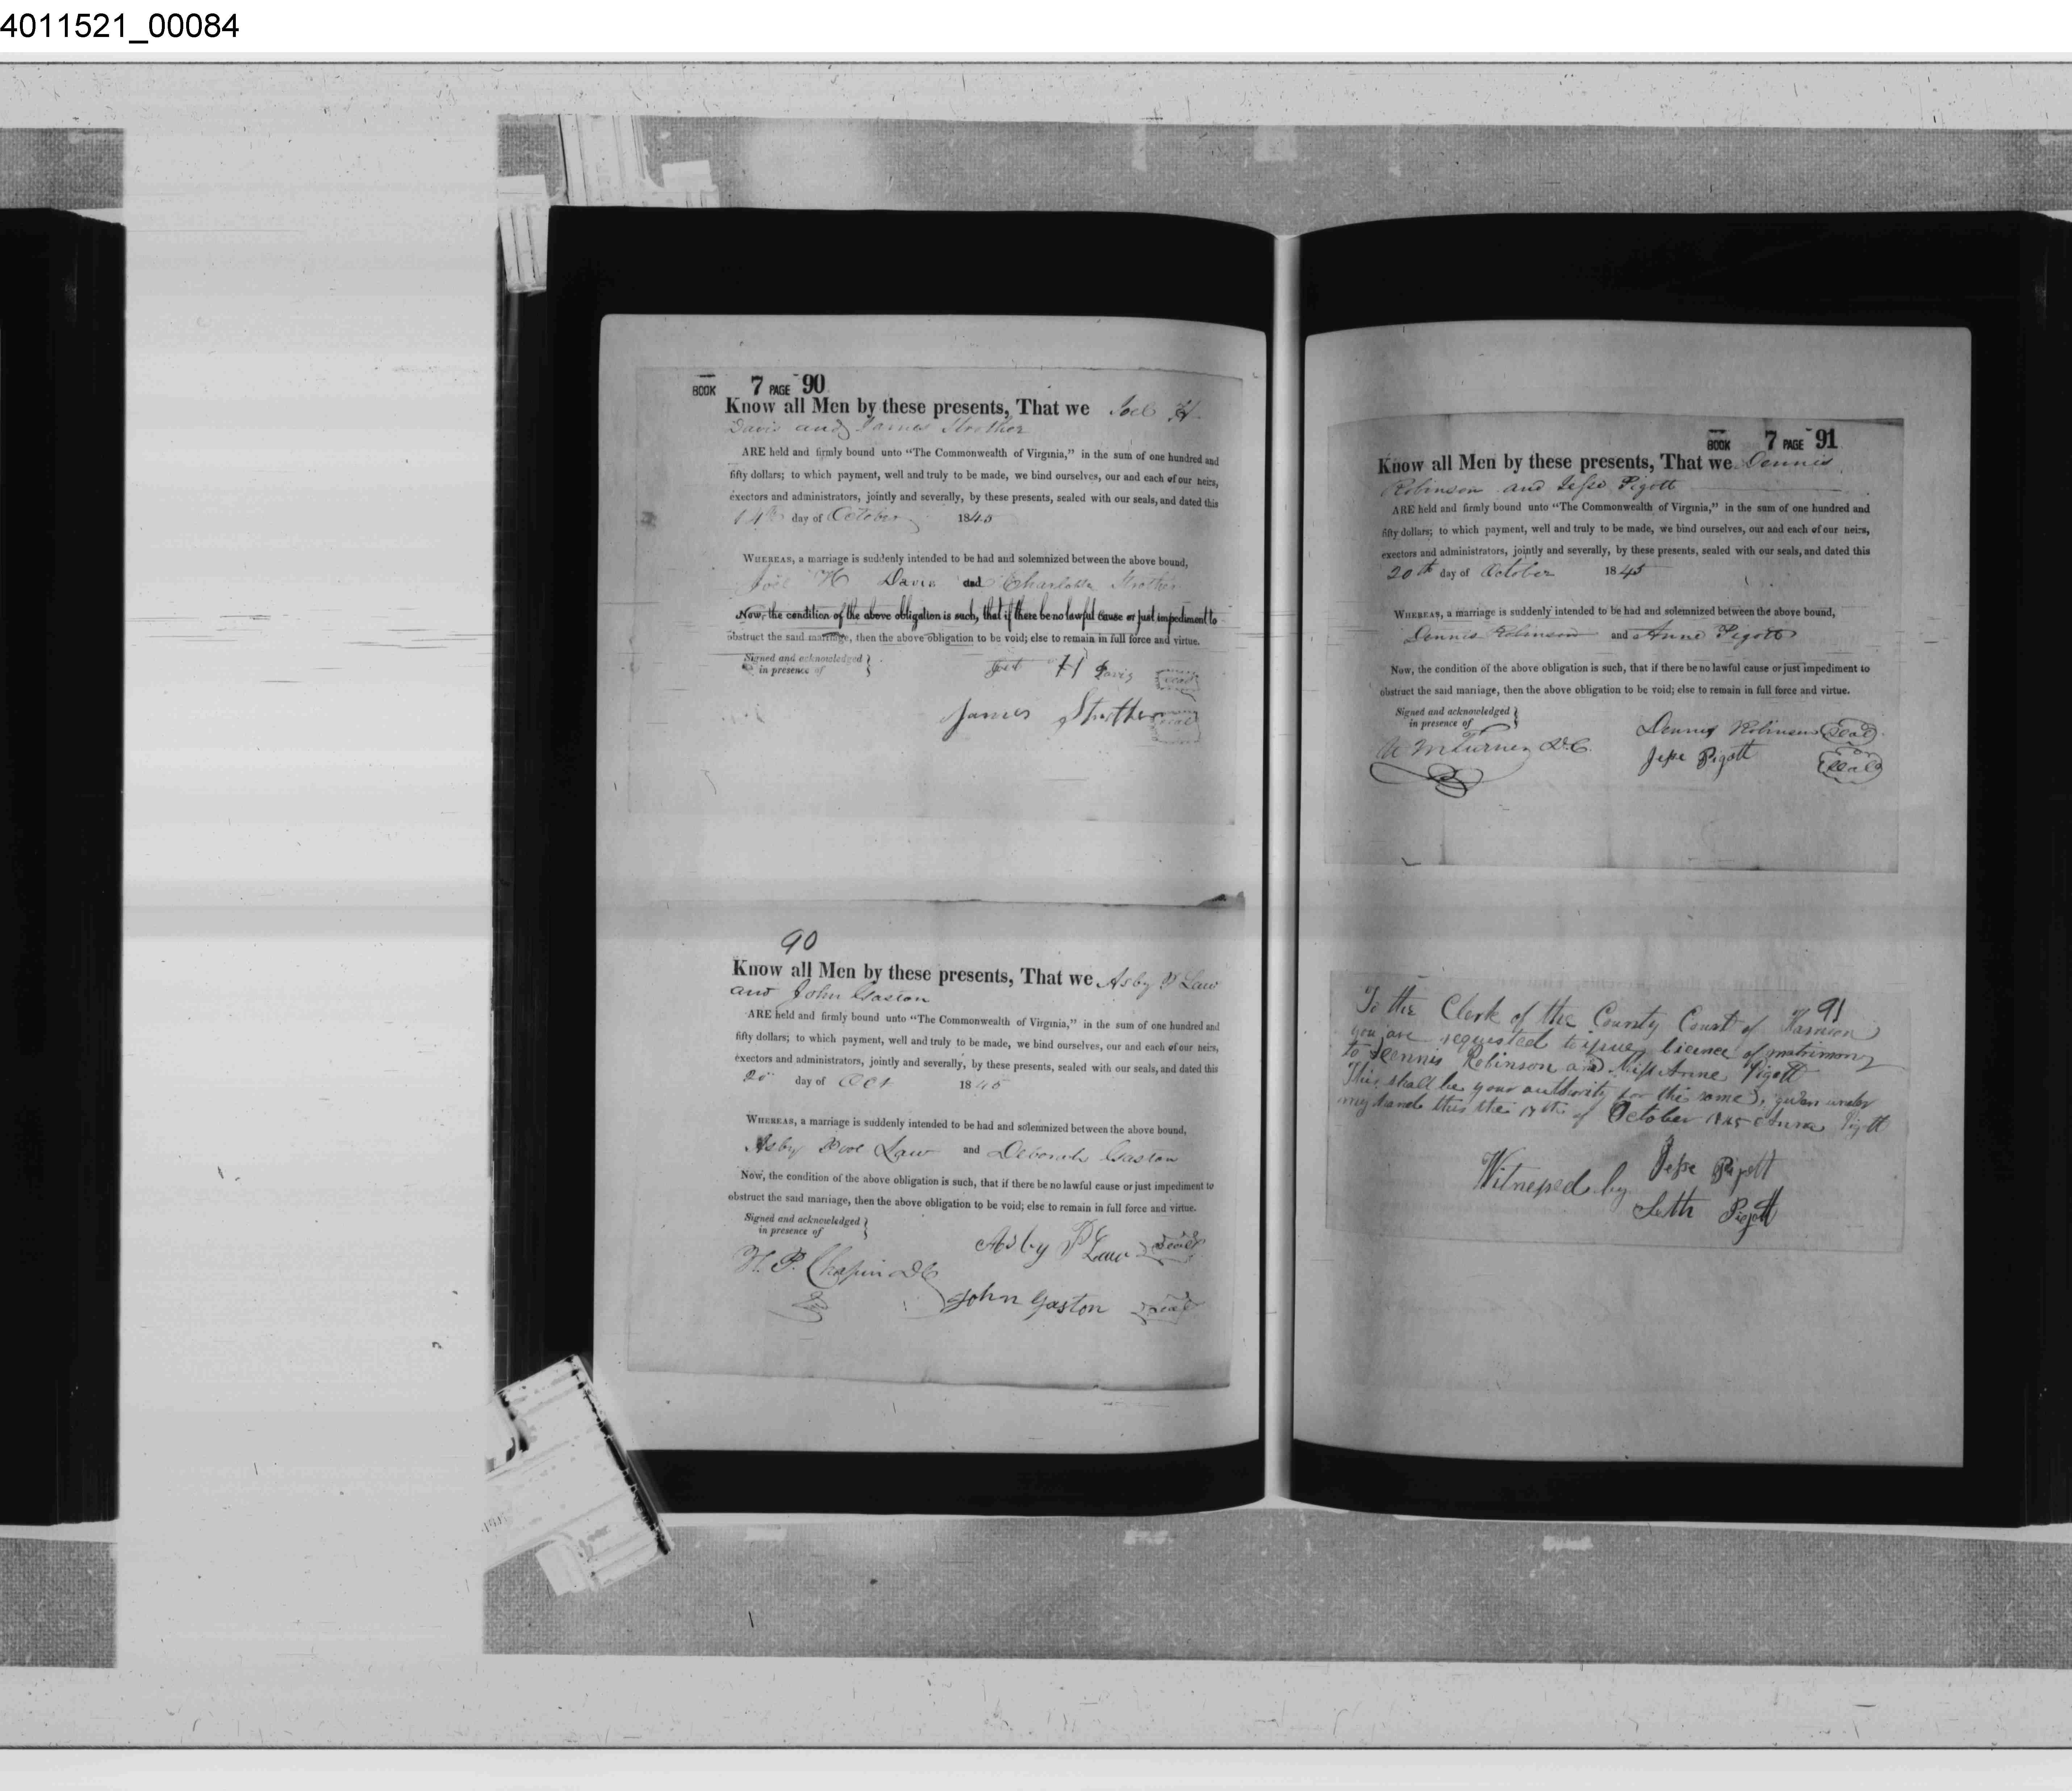 4011521_00084
BOOK 7 PAGE 90
Know all Men by these presents, That we Joel H.
Davis and James Strother
ARE held and firmly bound unto "The Commonwealth of Virginia," in the sum of one hundred and
fifty dollars; to which payment, well and truly to be made, we bind ourselves, our and each of our neirs,
exectors and administrators, jointly and severally, by these presents, sealed with our seals, and dated this
14th day of October 1845
WHEREAS, a marriage is suddenly intended to be had and solemnized between the above bound,
Joel H Davis and Charlotte Strother
Now, the condition of the above obligation is such, that if there be no lawful cause or just impediment to
obstruct the said marriage, then the above obligation to be void; else to remain in full force and virtue.
Signed and acknowledged }
in presence of
H Davis seal
James Strother seal
90
Know all Men by these presents, That we Asby P Law
and John Gaston
ARE held and firmly bound unto "The Commonwealth of Virginia," in the sum of one hundred and
fifty dollars; to which payment, well and truly to be made, we bind ourselves, our and each of our neirs,
exectors and administrators, jointly and severally, by these presents, sealed with our seals, and dated this
20 day of Oct 1845
WHEREAS, a marriage is suddenly intended to be had and solemnized between the above bound,
Asby Law and Deborah Gaston
Now, the condition of the above obligation is such, that if there be no lawful cause or just impediment to
obstruct the said marriage, then the above obligation to be void; else to remain in full force and virtue.
Signed and acknowledged }
in presence of
Asby P Law seal
H. P. Chapin DC
John Gaston seal
BOOK 7 PAGE 91
Know all Men by these presents, That we Dennis
Robinson and Jesse Pigott
ARE held and firmly bound unto "The Commonwealth of Virginia," in the sum of one hundred and
fifty dollars; to which payment, well and truly to be made, we bind ourselves, our and each of our neirs,
exectors and administrators, jointly and severally, by these presents, sealed with our seals, and dated this
20th day of October 1845
WHEREAS, a marriage is suddenly intended to be had and solemnized between the above bound,
Dennis Robinson and Anne Pigott
Now, the condition of the above obligation is such, that if there be no lawful cause or just impediment to
obstruct the said marriage, then the above obligation to be void; else to remain in full force and virtue.
Signed and acknowledged }
in presence of
Dennis Robinson Seal
Turner D.C.
Jesse Pigott Seal
91
To the Clerk of the County Court of Harrison
you are requested to issue licence of matrimony
to Dennis Robinson and Miss Anne Pigott
This shall be your authority for the same, given under
my hand this the 17th of October 1845 Anna Pigott
Witnessed by Jesse Pigott
Seth Pigott